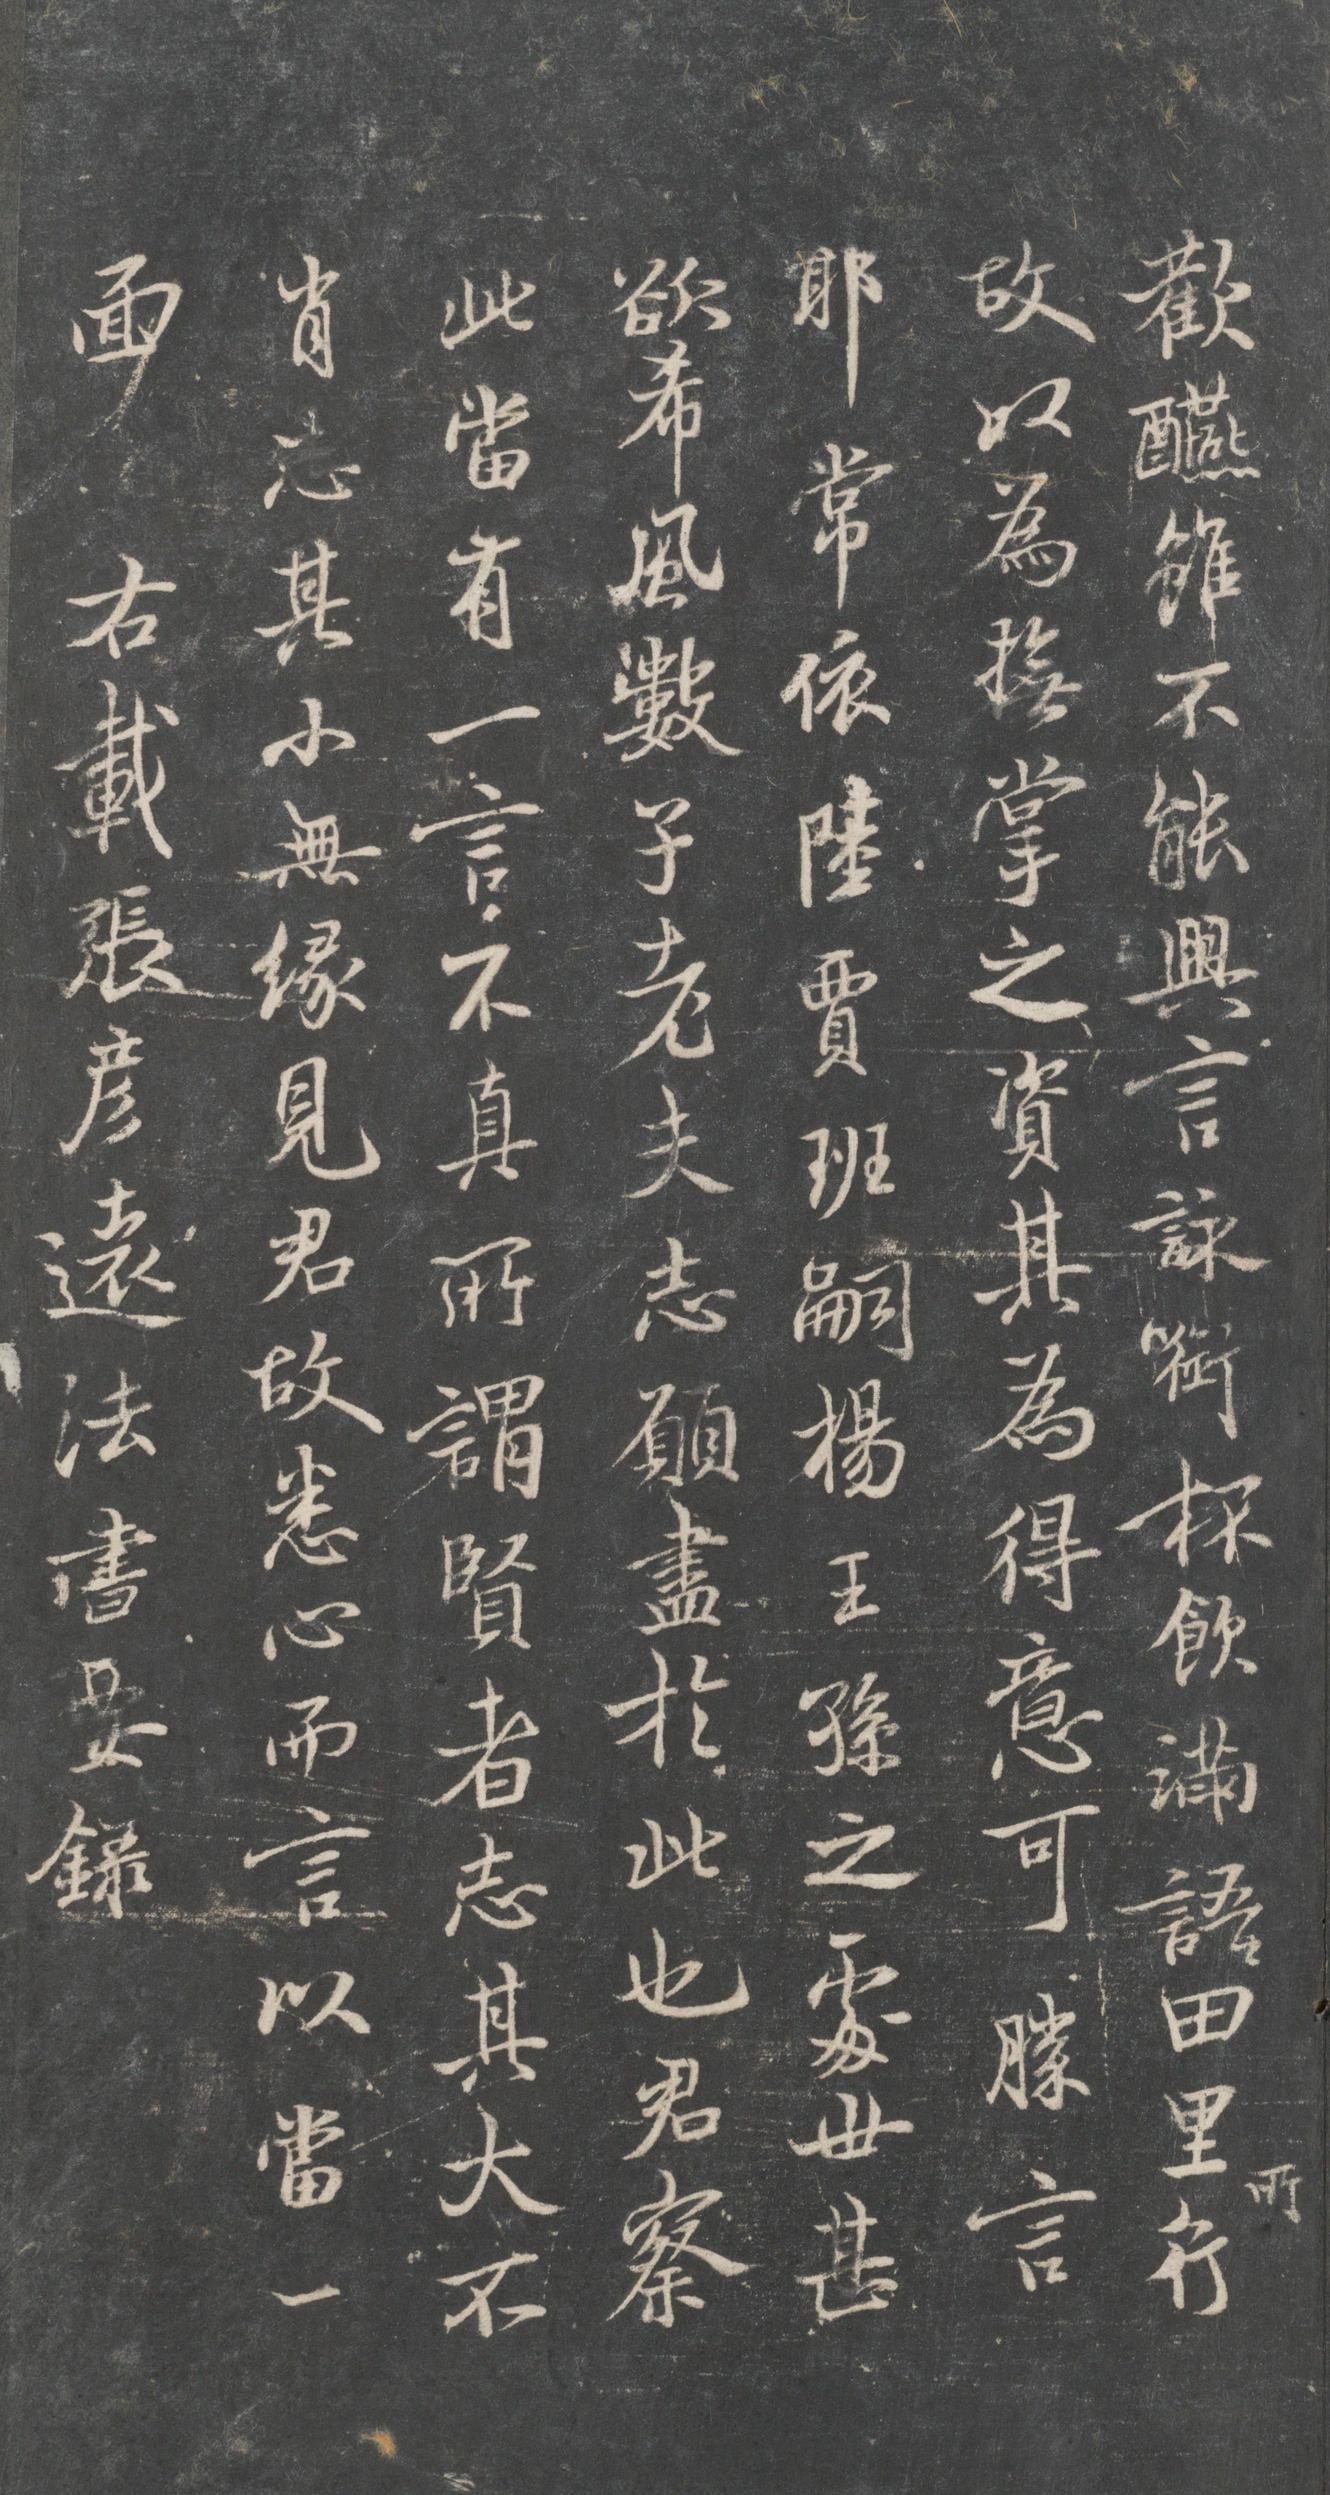 歡醼雖不能興言詠銜杯飲滿語田里行
所
故以為撫掌之資其為得意可勝言
耶常依陸賈班嗣楊王孫之處世甚
欲希風數子老夫志願盡於此也君察
此當有一言不真所謂賢者志其大不
肖志其小無緣見君故悉心而言以當一
面 右載張彥遠法書要錄